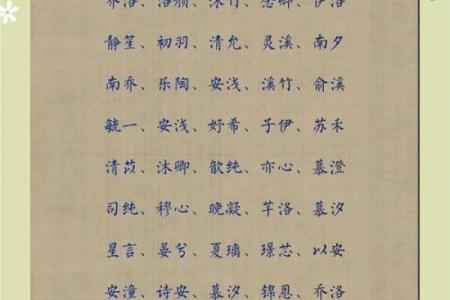 乔洛、洛颜、沐竹、念卿、伊洛
静笙、初羽、清允、灵溪、南夕
南乔、乐陶、安浅、溪竹、俞溪
毓一、安浅、妤希、子伊、苏禾
清苡、沐卿、歆纯、亦心、慕澄
司纯、穆心、晚凝、芊洛、慕汐
星言、晏兮、夏璃、璟芯、以安
安潼、诗安、慕汐、锦恩、乔洛